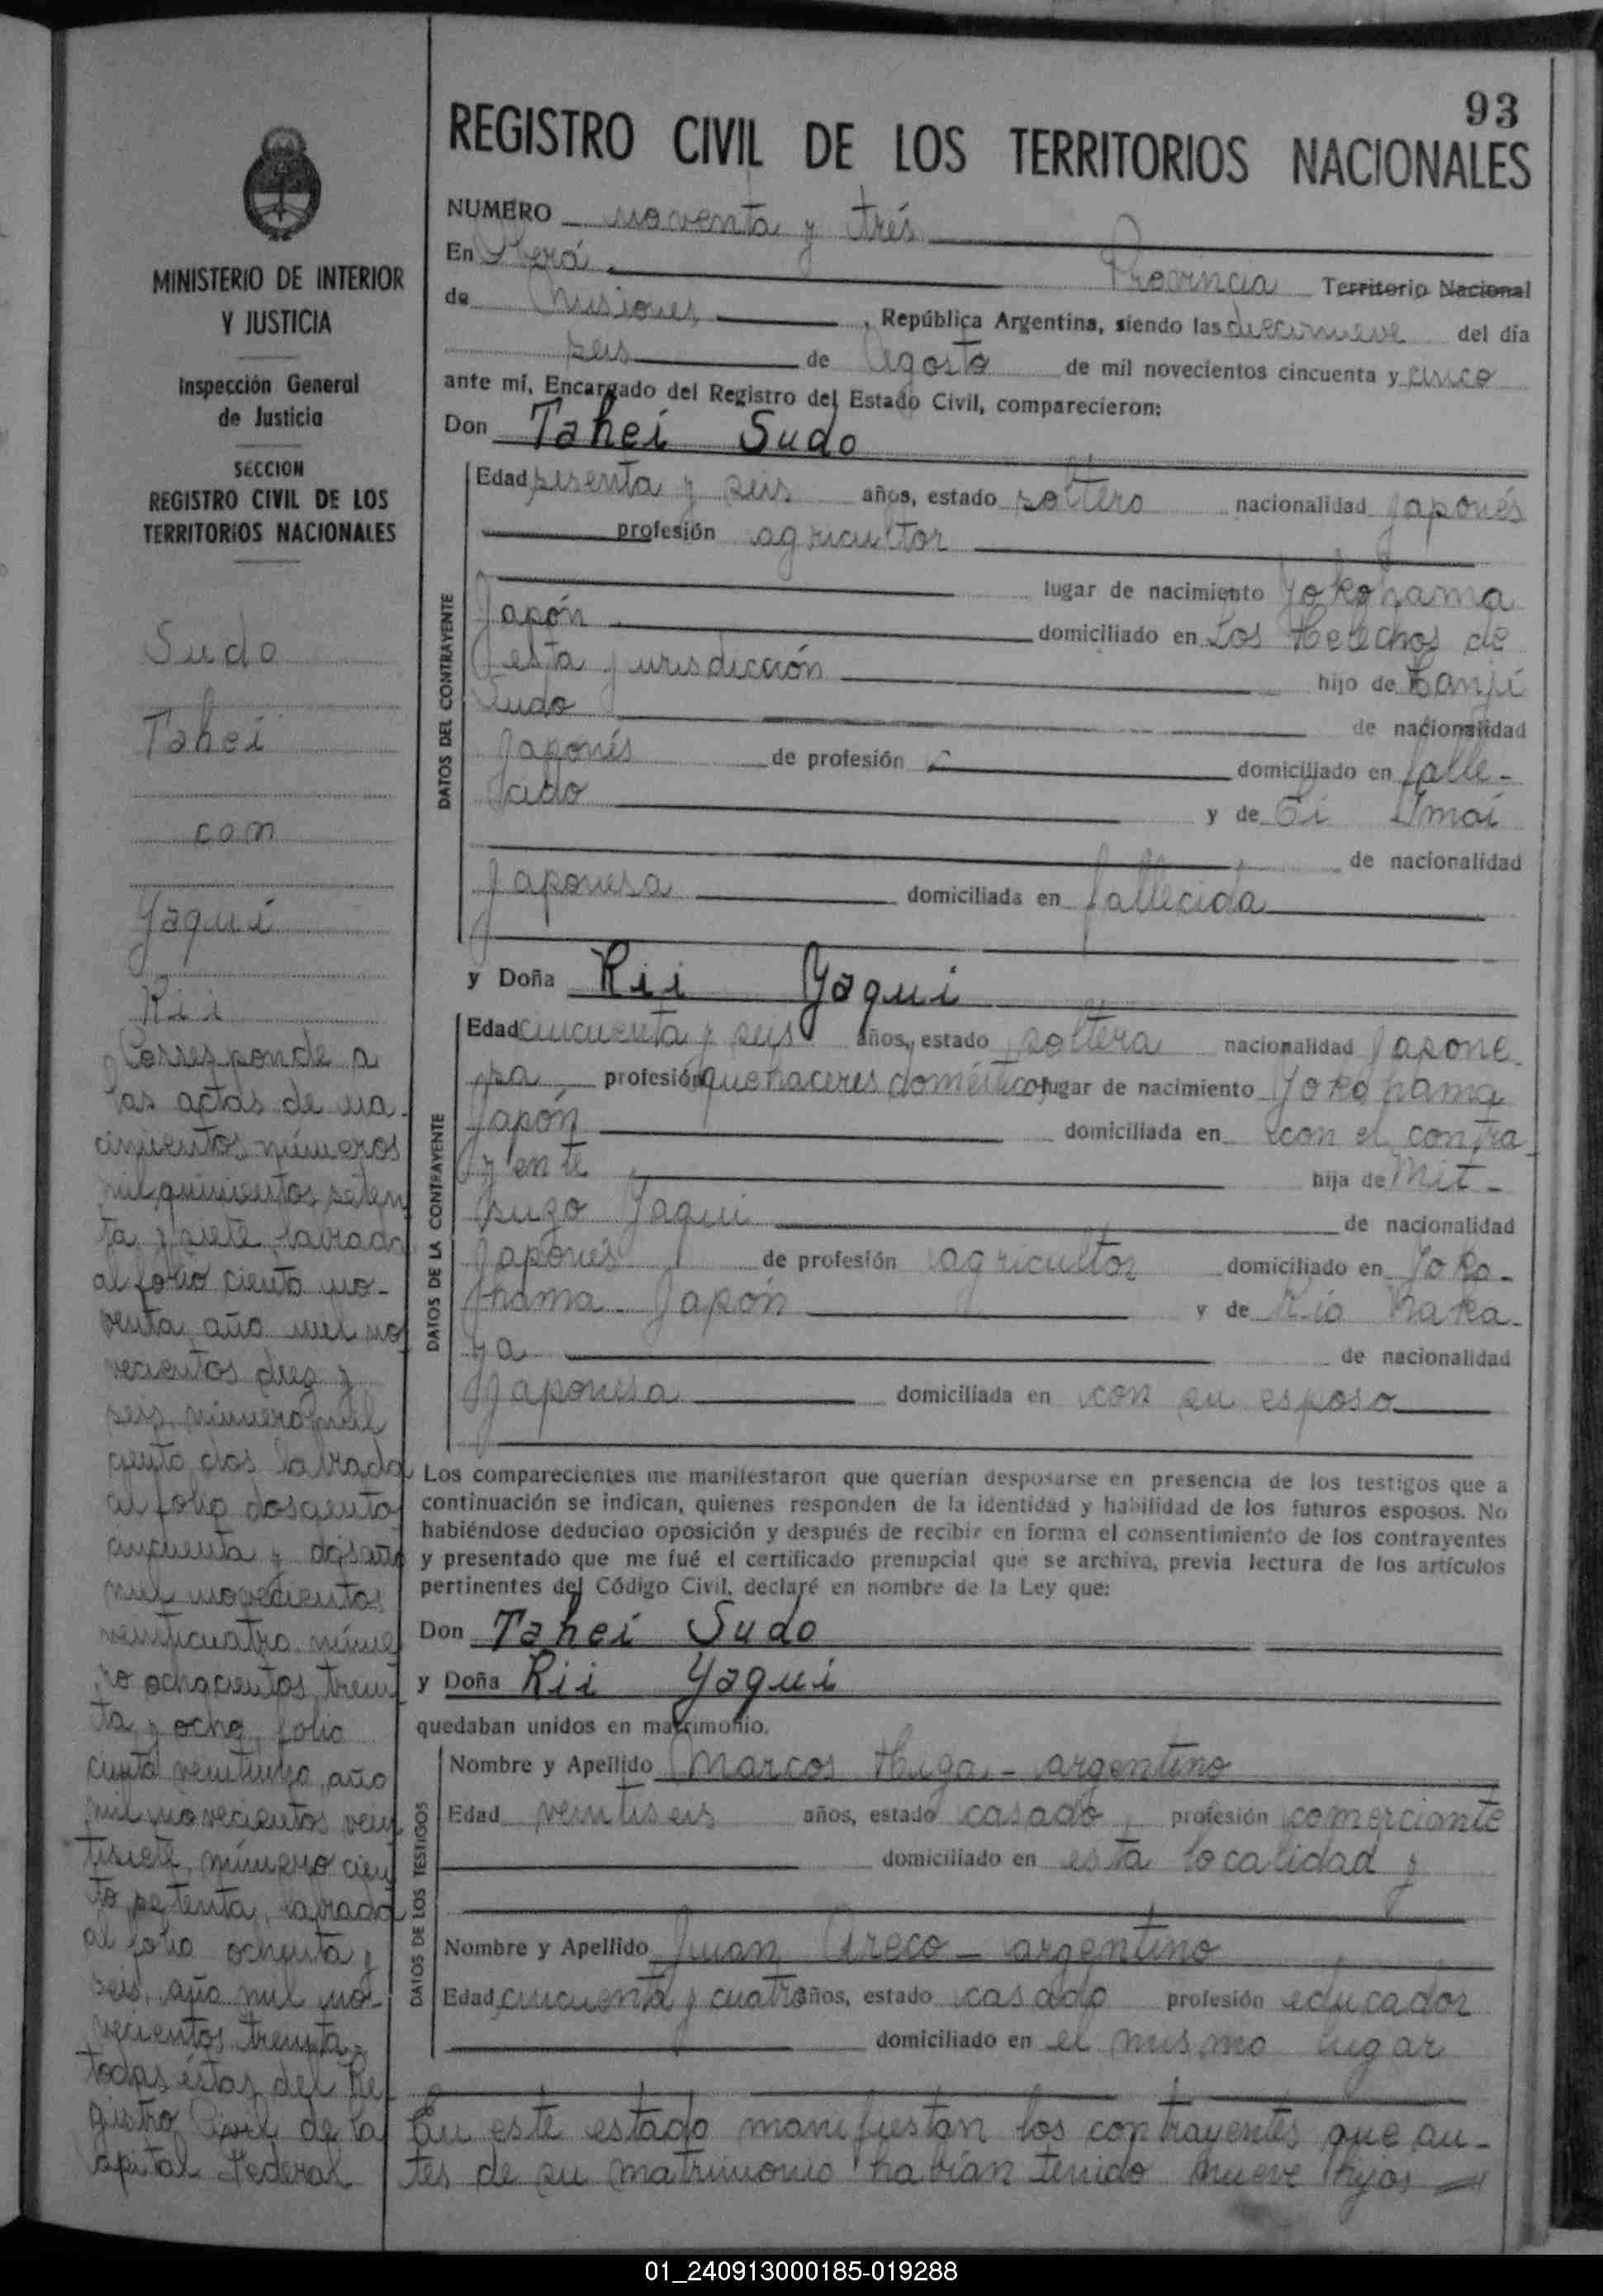 93
REGISTRO CIVIL DE LOS TERRITORIOS NACIONALES
MINISTERIO DE INTERIOR
Y JUSTICIA
Inspección General
de Justicia
SECCION
REGISTRO CIVIL DE LOS
TERRITORIOS NACIONALES
Sudo
Tahei
con
Yaqui
Rii
Corresponde a
las actas de na-
cimientos números
mil quinientos seten
ta y siete labrada
al folio ciento no-
venta, año mil no
vecientos diez y
seis, número mil
ciento dos labrada
al folio doscientos
cincuenta y dos año
mil novecientos
veinticuatro núme
ro ochocientos trein
ta y ocho, folio
ciento año
mil novecientos vein
tisiete, número cien
to setenta, labrada
al folio ochenta y
seis, año mil no-
vecientos treinta,
todas éstas del Re
gistro Civil de la
Capital Federal
NUMERO noventa y trés
En Oberá Provincia Territorio Nacional
de Misiones, República Argentina, siendo las diecinueve del día
seis de Agosto de mil novecientos cincuenta y cinco
ante mí, Encargado del Registro del Estado Civil, comparecieron:
Don Tahei Sudo
DATOS DEL CONTRAYENTE
Edad sesenta y seis años, estado soltero nacionalidad Japonés
profesión agricultor
lugar de nacimiento Yokohama
Japón domiciliado en Los Helechos de
esta jurisdicción hijo de Canji
Sudo de nacionalidad
Japonés de profesión domiciliado en falle-
cido y de Ei Imai
de nacionalidad
Japonesa domiciliada en fallecida
y Doña Rii Yaqui
DATOS DE LA CONTRAYENTE
Edad cincuenta y seis años, estado soltera nacionalidad Japone-
sa, profesión quehaceres domésticos lugar de nacimiento Yokohama
Japón domiciliada en con el contra-
yente hija de Mit-
suzo Yaqui de nacionalidad
Japonés de profesión agricultor domiciliado en Yoko-
hama Japón y de Kio Naka-
ya de nacionalidad
Japonesa domiciliada en con su esposo
Los comparecientes me manifestaron que querían desposarse en presencia de los testigos que a
continuación se indican, quienes responden de la identidad y habilidad de los futuros esposos. No
habiéndose deducido oposición y después de recibir en forma el consentimiento de los contrayentes
y presentado que me fué el certificado prenupcial que se archiva, previa lectura de los artículos
pertinentes del Código Civil, declaré en nombre de la Ley que:
Don Tahei Sudo
y Doña Rii Yaqui
quedaban unidos en matrimonio.
DATOS DE LOS TESTIGOS
Nombre y Apellido Marcos Higa - argentino
Edad veintiseis años, estado casado, profesión comerciante
domiciliado en esta localidad y
Nombre y Apellido Juan Areco - argentino
Edad cincuenta y cuatro años, estado casado profesión educador
domiciliado en el mismo lugar
En este estado manifiestan los contrayentes que an-
tes de su matrimonio habían tenido nueve hijos
01_240913000185-019288